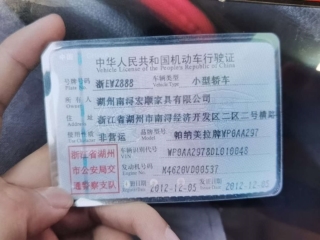 中华人民共和国机动车行驶证
Vehicle License of the People's Republic of China
号牌号码 浙EWZ888 车辆类型 小型轿车
Plate No. Vehicle Type
所有人 湖州南浔宏顺家具有限公司
Owner
住址 浙江省湖州市南浔经济开发区二区二号横路
Address
非营运 品牌型号 帕纳美拉牌WP0AAZ97
Model
浙江省湖州市公安局交通警察支队
车辆识别代号
VIN
发动机号码
Engine No.
注册日期 2012-12-05 发证日期 2012-12-05